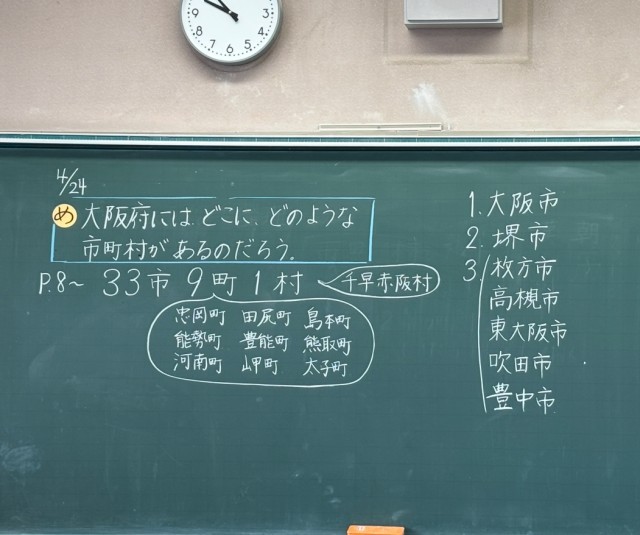 4/24
め 大阪府には、どこに、どのような
市町村があるのだろう。
P.8〜 33市 9町 1村
千早赤阪村
忠岡町 田尻町 島本町
能勢町 豊能町 熊取町
河南町 岬町 太子町
1. 大阪市
2. 堺市
3. 枚方市
高槻市
東大阪市
吹田市
豊中市
9
3
4
5
6
7
8